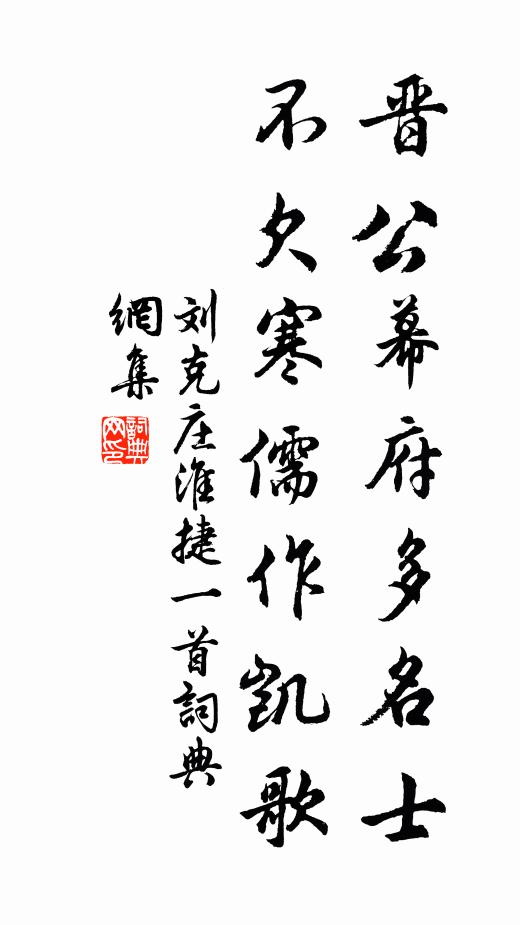 晋公幕府多名士
不欠寒儒作凯歌
刘克庄淮捷一首词典
網集
詞典網印